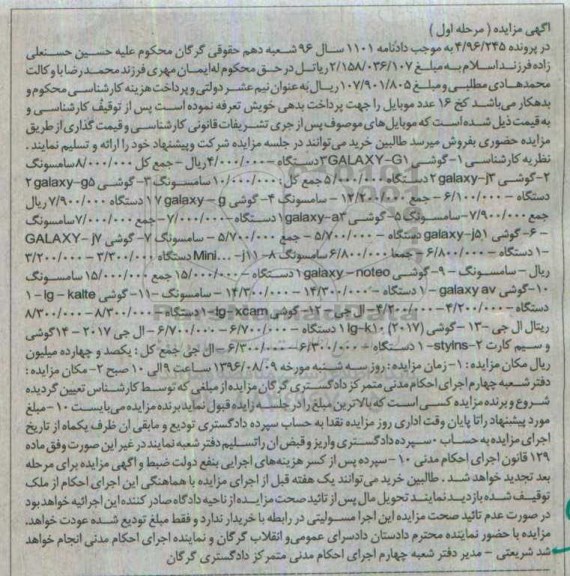 آگهی مزایده ( مرحله اول )
در پرونده ۴/۹۶/۲۴۵ به موجب دادنامه ۱۱۰۱ سال ۹۶ شعبه دهم حقوقی گرگان محکوم علیه حسین حسنعلی
زاده فرزند اسلام به مبلغ ۲/۱۵۸/۰۳۶/۱۰۷ ریال در حق محکوم له ایمان مهری فرزند محمدرضا با وکالت
محمدهادی مطلبی و مبلغ ۱۰۷/۹۰۱/۸۰۵ ریال به عنوان نیم عشر دولتی و پرداخت هزینه کارشناسی محکوم و
بدهکار می‌باشد کخ ۱۶ عدد موبایل را جهت پرداخت بدهی خویش تعرفه نموده است پس از توقیف کارشناسی و
به قیمت ذیل شده است که موبایل های موصوف پس از جری تشریفات قانونی کارشناسی و قیمت گذاری از طریق
مزایده حضوری بفروش میرسد طالبین خرید می‌توانند در جلسه مزایده شرکت و پیشنهاد خود را ارائه و تسلیم نمایند.
نظریه کارشناسی ۱- گوشی GALAXY-G1 ۲دستگاه -۴/۰۰۰/۰۰۰ ریال - جمع کل ۸/۰۰۰/۰۰۰ سامسونگ
۲- گوشی galaxy-j۳ ۲دستگاه ۵/۰۰۰/۰۰۰ جمع کل ۱۰/۰۰۰/۰۰۰ سامسونگ ۳- گوشی galaxy-g۵ ۲
دستگاه - ۶/۱۰۰/۰۰۰ - جمع ۱۲/۲۰۰/۰۰۰ - سامسونگ ۴- گوشی galaxy – g ۱۷ دستگاه ۷/۹۰۰/۰۰۰ ریال
جمع ۷/۹۰۰/۰۰۰ - سامسونگ ۵- گوشی galaxy-a۳ ۱دستگاه -۷/۰۰۰/۰۰۰ - جمع ۷/۰۰۰/۰۰۰ سامسونگ
- ۶- گوشی galaxy-j۵۱ دستگاه - ۵/۷۰۰/۰۰۰ - جمع ۵/۷۰۰/۰۰۰ - سامسونگ ۷- گوشی GALAXY- j۷
-۱ دستگاه -۶/۸۰۰/۰۰۰ - جمعا ۶/۸۰۰/۰۰۰ سامسونگ ۸- Mini...– j۱۱ دستگاه ۳/۲۰۰/۰۰۰ - ۳/۲۰۰/۰۰۰
ریال - سامسونگ - ۹- گوشی galaxy – noteo ۱ دستگاه - ۱۵/۰۰۰/۰۰۰ جمع ۱۵/۰۰۰/۰۰۰ سامسونگ
۱۰- گوشی galaxy av - ۱ دستگاه -۱۴/۳۰۰/۰۰۰ - ۱۴/۳۰۰/۰۰۰ - سامسونگ -۱۱- گوشی lg - kalte - ۱
دستگاه -۴/۲۰۰/۰۰۰ - ۴/۲۰۰/۰۰۰ - ال جی - ۱۲- گوشی lg-xcam ۱- دستگاه - ۸/۳۰۰/۰۰۰ - ۸/۳۰۰/۰۰۰
ریتال ال جی -۱۳ - گوشی (۲۰۱۷) lg-k۱۰ ۱ دستگاه - ۶/۷۰۰/۰۰۰ - ۶/۷۰۰/۰۰۰ - ال جی ۲۰۱۷ - ۱۴ گوشی
و سیم کارت stylns-۲ - ۱ دستگاه -۶/۳۰۰/۰۰۰ - ۶/۳۰۰/۰۰۰ -ال جی جمع کل : یکصد و چهارده میلیون
ریال مکان مزایده : ۱- زمان مزایده : روز سه شنبه مورخه ۱۳۹۶/۰۸/۰۹ ساعت ۹ الی ۱۰ صبح ۲- مکان مزایده :
دفتر شعبه چهارم اجرای احکام مدنی متمرکز دادگستری گرگان مزایده از مبلغی که توسط کارشناس تعیین گردیده
شروع و برنده مزایده کسی است که بالاترین مبلغ را در جلسه مزایده قبول نماید برنده مزایده می‌بایست ۱۰ - مبلغ
مورد پیشنهاد را تا پایان وقت اداری روز مزایده نقدا به حساب سپرده دادگستری تودیع و مابقی ان ظرف یکماه از تاریخ
اجرای مزایده به حساب ۰ سپرده دادگستری واریز و قبض ان را تسلیم دفتر شعبه نمایند در غیر این صورت وفق ماده
۱۲۹ قانون اجرای احکام مدنی ۱۰ - سپرده پس از کسر هزینه های اجرایی بنفع دولت ضبط و اگهی مزایده برای مرحله
بعد تجدید خواهد شد . طالبین خرید می توانند یک هفته قبل از اجرای مزایده با هماهنگی این اجرای احکام از ملک
توقیف شده بازدید نمایند تحویل مال پس از تائید صحت مزایده از ناحیه دادگاه صادر کننده این اجرائیه خواهد بود
در صورت عدم تائید صحت مزایده این اجرا مسولیتی در رابطه با خریدار ندارد و فقط مبلغ تودیع شده عودت خواهد.
مزایده با حضور نماینده محترم دادستان دادسرای عمومی و انقلاب گرگان و نماینده اجرای احکام مدنی انجام خواهد
شد شریعتی - مدیر دفتر شعبه چهارم اجرای احکام مدنی متمرکز دادگستری گرگان